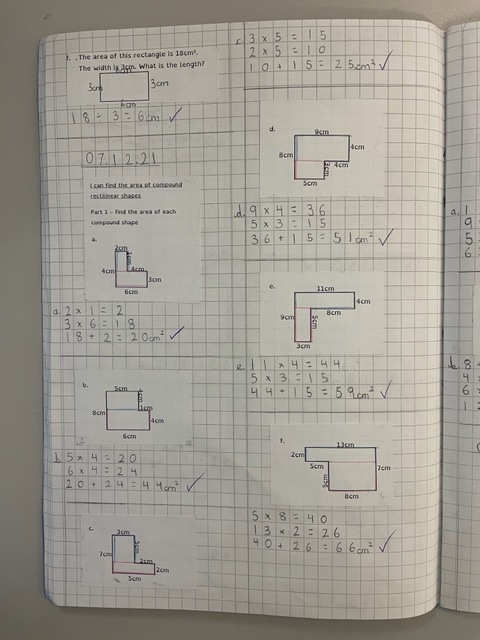 f. The area of this rectangle is 18cm².
The width is 3cm. What is the length?
6cm
3cm
3cm
6cm
18 ÷ 3 = 6cm ✓
07.12.21
I can find the area of compound
rectilinear shapes
Part 1 – find the area of each
compound shape
a.
2cm
1cm
4cm
4cm
3cm
6cm
a. 2 × 1 = 2
3 × 6 = 18
18 + 2 = 20cm² ✓
b.
5cm
4cm
8cm
1cm
4cm
6cm
b. 5 × 4 = 20
6 × 4 = 24
20 + 24 = 44cm² ✓
c.
3cm
5cm
7cm
2cm
2cm
5cm
c. 3 × 5 = 15
2 × 5 = 10
10 + 15 = 25cm² ✓
d.
9cm
8cm
4cm
3cm
4cm
5cm
d. 9 × 4 = 36
5 × 3 = 15
36 + 15 = 51cm² ✓
e.
11cm
4cm
9cm
5cm
8cm
3cm
e. 11 × 4 = 44
5 × 3 = 15
44 + 15 = 59cm² ✓
f.
13cm
2cm
5cm
7cm
5cm
8cm
5 × 8 = 40
13 × 2 = 26
40 + 26 = 66cm² ✓
a. 1
9
5
6
b. 8
4
6
1